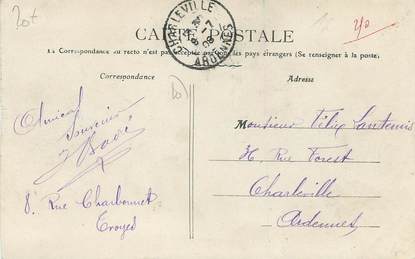 20+
2/0
CHARLEVILLE
ARDENNES
CARTE POSTALE
La Correspondance au recto n'est pas acceptée par tous les pays étrangers (Se renseigner à la poste)
Correspondance
Adresse
20
Amical
Souvenir
8, Rue Charbonnet
Troyes
Monsieur Félix Lautenis
36, Rue Forest
Charleville
Ardennes